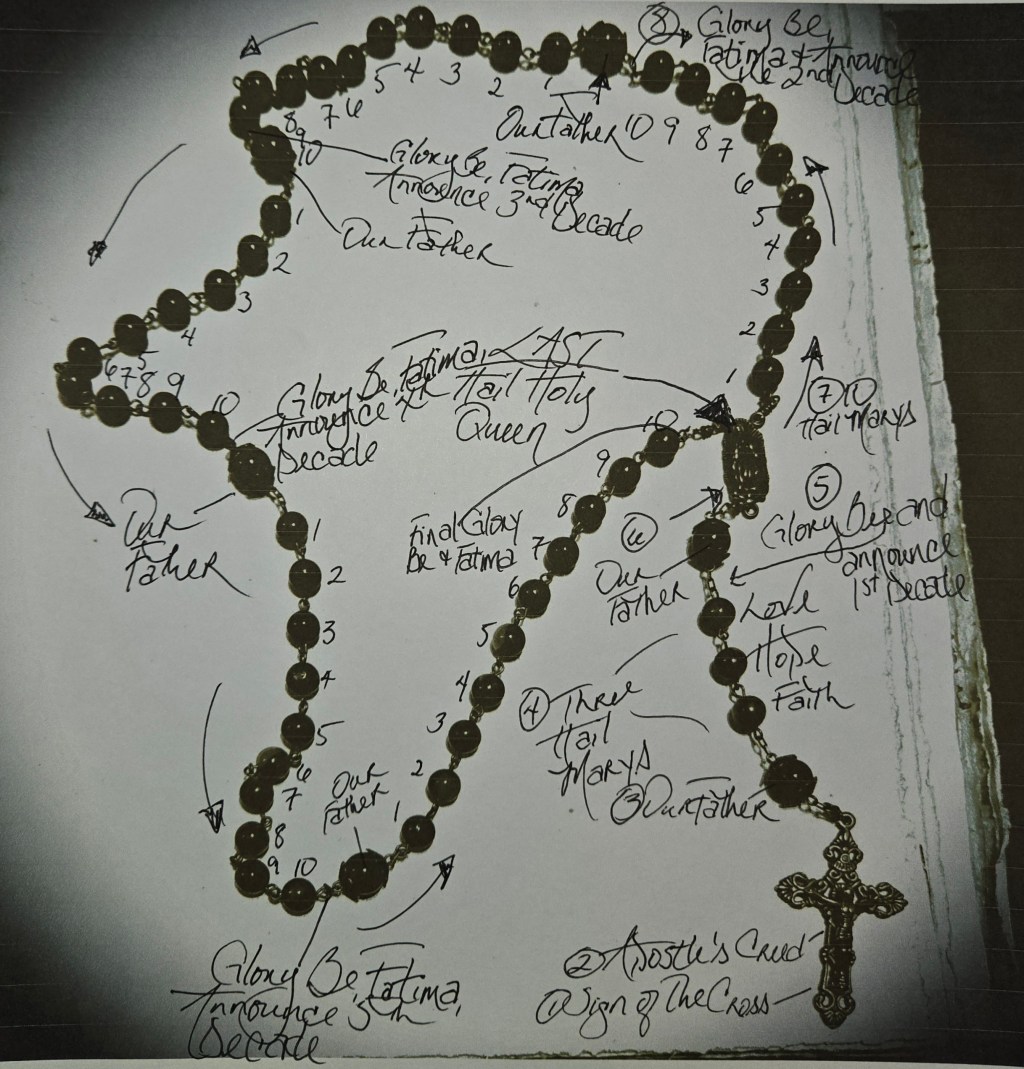 ① Sign of The Cross
② Apostle's Creed
③ Our Father
④ Three
Hail
Marys
Faith
Hope
Love
⑤
Glory Be and
announce
1st Decade
⑥
Our
Father
⑦ 10
Hail Marys
1
2
3
4
5
6
7
8
9
10
⑧ Glory Be,
Fatima & Announce
the 2nd
Decade
Our Father
1
2
3
4
5
6
7
8
9
10
Glory Be, Fatima
Announce 3rd Decade
Our Father
1
2
3
4
5
6
7
8
9
10
Glory Be, Fatima,
Announce
Decade
Our
Father
1
2
3
4
5
6
7
8
9
10
Glory Be, Fatima,
Announce 5th
Decade
Our
Father
1
2
3
4
5
6
7
8
9
10
Final Glory
Be & Fatima
LAST
Hail Holy
Queen